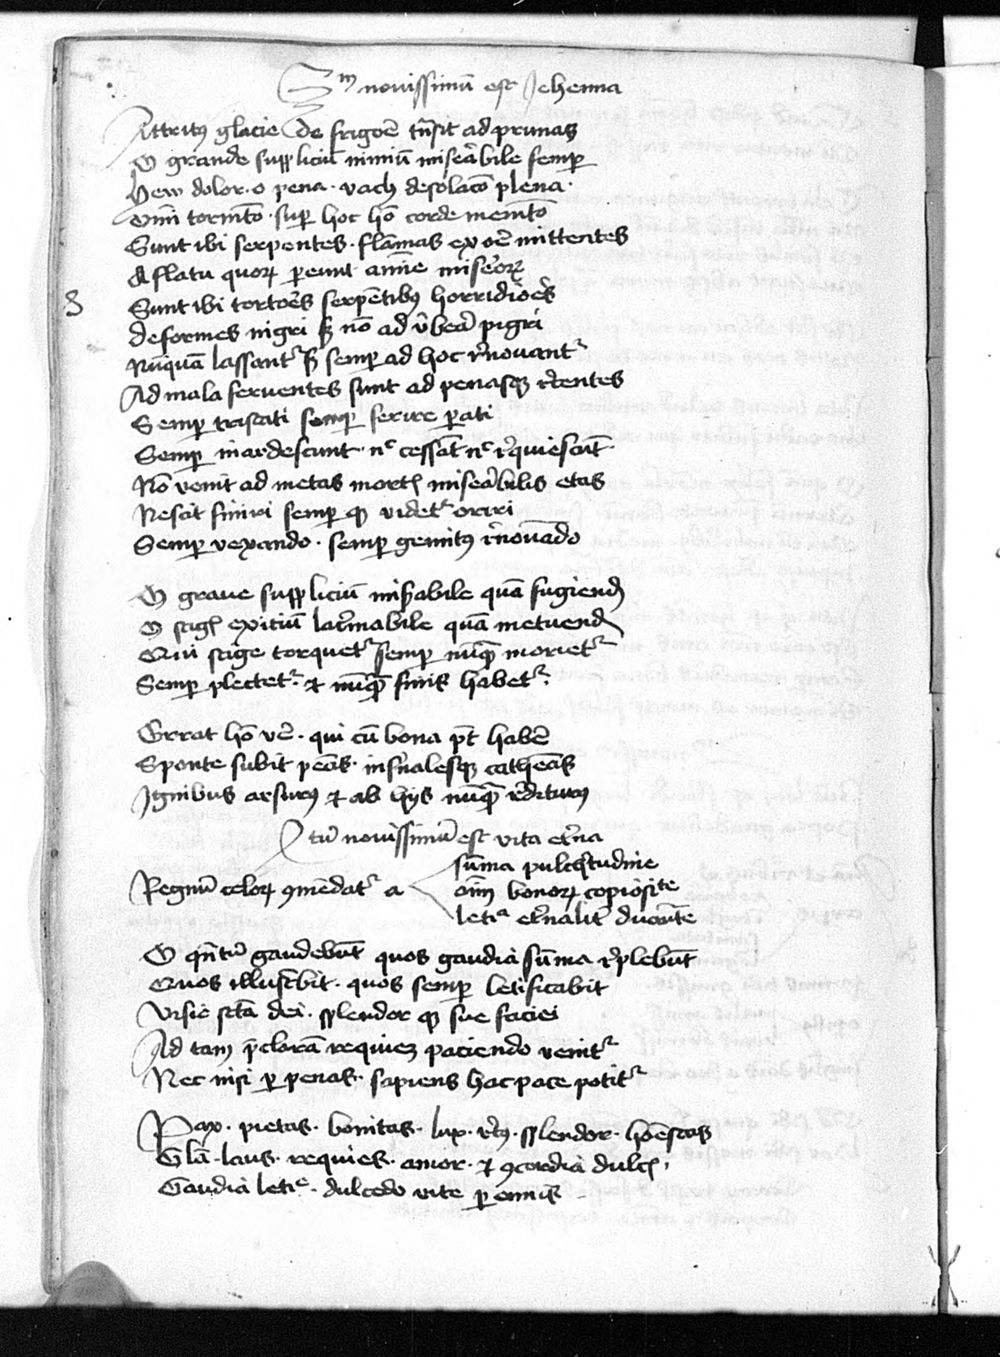 3m nouissimū est Jehenna
Attritꝰ glacie de frigore tn̄sit ad prunas
O grande suppliciū nimiū miserabile semper
Hew dolor · o pena · vach desolacōe plena ·
Omni tormēto · super hoc hō corde memēto
Sunt ibi serpentes · flāmas ex ore mittentes
Afflatu quoꝝ pereunt anīe miseroꝝ
Sunt ibi tortores serpētibꝰ horridiores
deformes nigri sꝫ nō ad v̄bera pigri
Nūquā lassantr sꝫ semper ad hoc renouantr
Ad mala feruentes sunt ad penasqꝫ recentes
Semper irascati semper ferire parati
Semper inardescunt · nc cessāt nc requiescūt
Nō venit ad metas mortis miserabilis etas
Nescit finiri semper qꝫ videtr oriri
Semper vexando · semper gemitꝰ renouādo
O graue suppliciū miserabile quā fugiendū
O stigis exitiū lacrimabile quā metuendū
Qui stige torquetr semper nūqꝫ morietr
Semper plectetr · et nūqꝫ finis habetr ·
Errat hō vere · qui cū bona pōt habere
Sponte subit penas · infernalesqꝫ cathenas
Ignibus arsurus et ab hijs nūqꝫ rediturus
4tū nouissimū est vita eterna
Regnū celoꝝ 9mēdatr a
sūma pulchritudine
oīm bonoꝝ copiositate
letia eternaliter durante
O quātū gaudebūt quos gaudia sūma replebūt
Quos illustrabit · quos semper letificabit
Visio sctā dei · splendor qꝫ sue faciei
Ad tam preclaram requiem paciendo venitr
Nec nisi per penas · sapiens hac pace potitr
Pax · pietas · bonitas · lux · virtus · splendor · honestas
Glā · laus · requies · amor · et 9cordia dulcis ·
Gaudia letie · dulcedo vite perennis